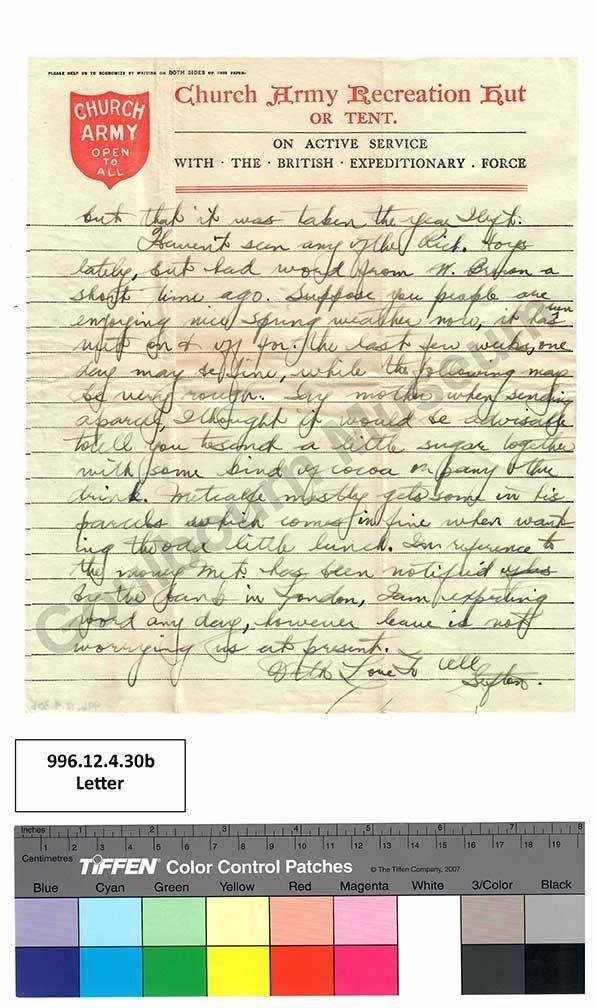 PLEASE HELP US TO ECONOMIZE BY WRITING ON BOTH SIDES OF THIS PAPER.
CHURCH
ARMY
OPEN
TO
ALL
Church Army Recreation Hut
OR TENT.
ON ACTIVE SERVICE
WITH · THE · BRITISH · EXPEDITIONARY . FORCE
but that it was taken the year I left.
Haven't seen any of the Rich. boys
lately, but had word from N. Brown a
short time ago. Suppose you people are
enjoying nice spring weather now, it has been
wet on & off for the last few weeks, one
day may be fine, while the following may
be very rough. Say mother when sending
a parcel, I thought it would be advisable
to tell you to send a little sugar together
with some kind of cocoa or any other
drink. Metcalfe mostly gets some in his
parcels which comes in fine when want-
ing the odd little lunch. In reference to
the money Met. has been notified
by the bank in London, I am expecting
word any day, however leave is not
worrying us at present.
With Love To All
Gifton.
Goulbourn Museum
996.12.4.30b
Letter
Inches 1 2 3 4 5 6 7 8
Centimetres 1 2 3 4 5 6 7 8 9 10 11 12 13 14 15 16 17 18 19
TIFFEN Color Control Patches © The Tiffen Company, 2007
Blue Cyan Green Yellow Red Magenta White 3/Color Black